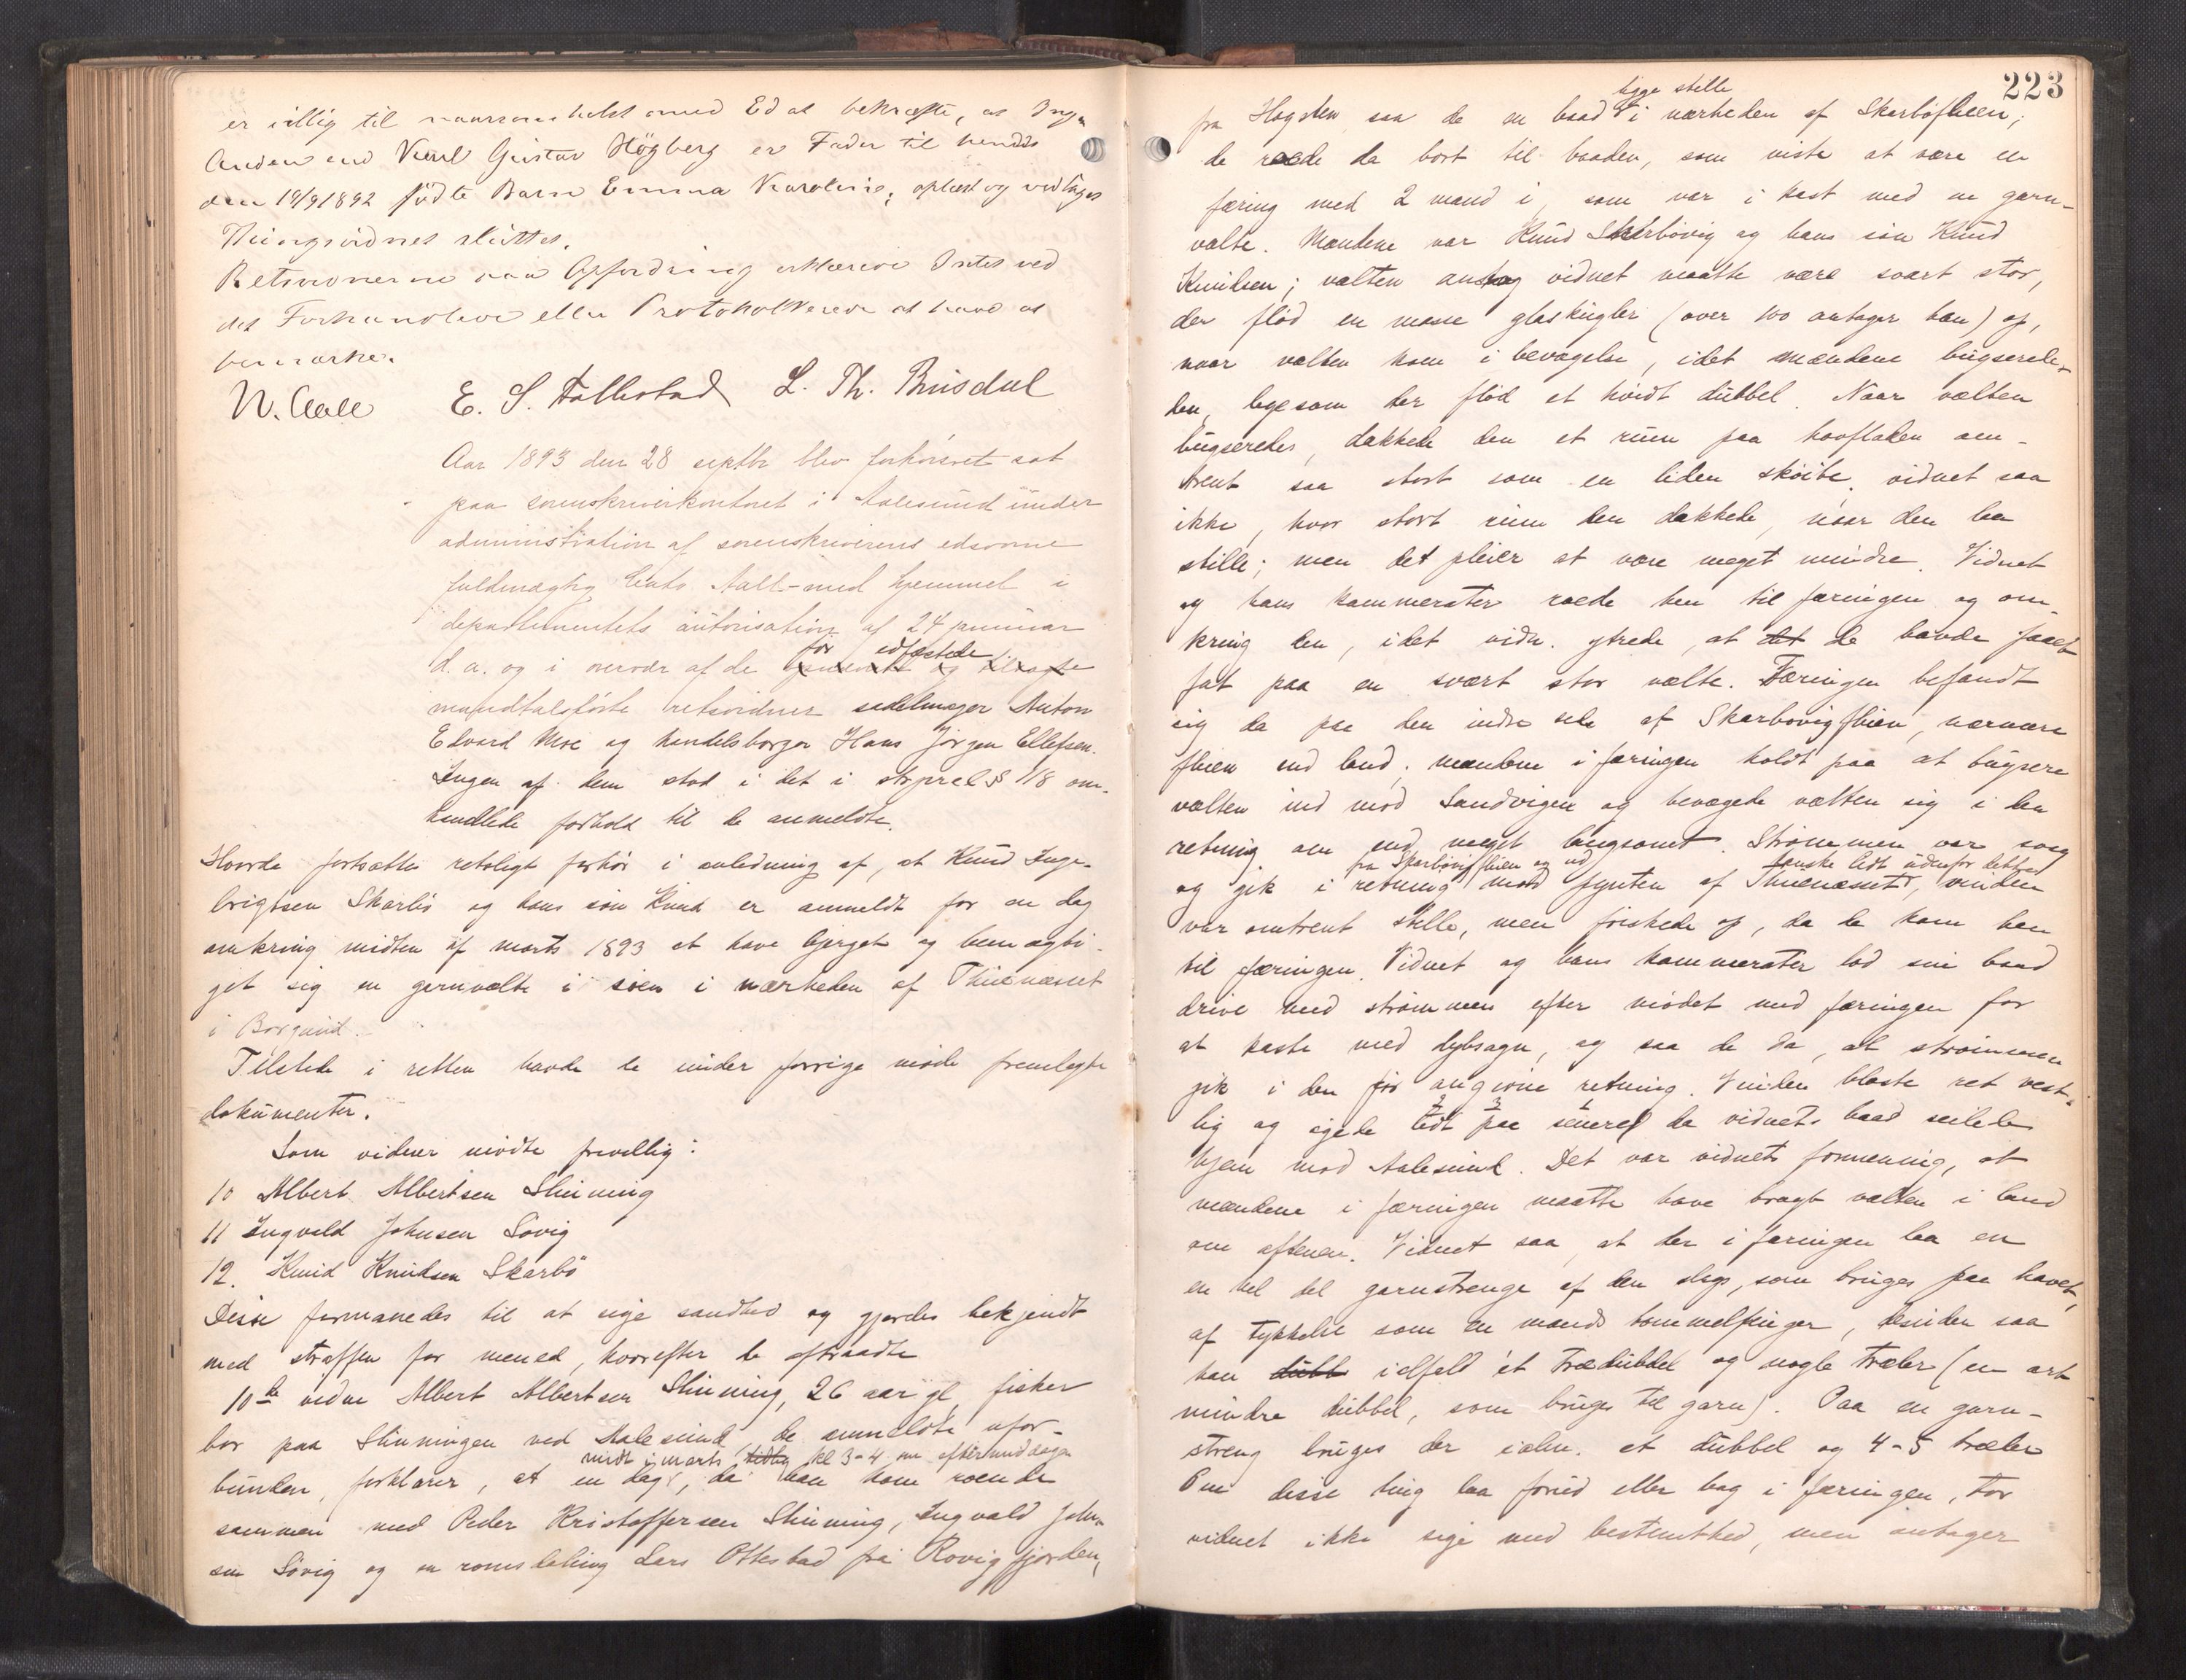 er villig til naarsomhelst med Ed at bekræfte, at Ingen
Anden end Karl Gustav Högberg er Fader til hendes
den 19/9 1892 födte Barn Emma Karoline; oplæst og vedtaget
Thingsvidnet sluttet.
Retsvidnerne paa Opfordring erklærede Intet ved
det Forhandlede eller Protokollerede at have at
bemærke.
N. Aall E. S. Tallestad L. Th. Brusdal
Aar 1893 den 28 septbr blev forhörsret sat
paa sorenskriverkontoret i Aalesund under
administration af sorenskriverens edsvorne
fuldmægtig Aall med hjemmel i
departementets autorisation af 24 januar
for edfæstede
d.a. og i overvær af de og tilkaldte
mandtalsförte retsvidner sadelmager Anton
Edvard Moe og handelsborger Hans Jörgen Ellefsen.
Ingen af dem stod i det i strprsl § 118 om-
handlede forhold til de anmeldte.
Hvorda fortsattes retsligt forhör i anledning af, at Knud Inge-
brigtsen Skarbö og hans sön Knud er anmeldt for en dag
omkring midten af marts 1893 at have bjerget og bemægti-
get sig en garnvælte i söen i nærheden af Thuenæsset
i Borgund.
Tilstede i retten havde de under forrige möde fremlagte
dokumenter.
Som vidner mödte frivillig:
10 Albert Albertsen Slinning
11 Ingvald Johnsen Sövig
12. Knud Knudsen Skarbö
Disse formanedes til at sige sandhed og gjordes bekjendt
med straffen for mened, hvorefter de aftraadte
10de vidne Albert Albertsen Slinning, 26 aar gl, fisker
bor paa Slinningen ved Aalesund, de anmeldte ufor-
midt i marts tidlig kl 3-4 om eftermiddagen
bunden, forklarer, at en dag, da han kom roende
sammen med Peder Kristoffersen Slinning, Ingvald John-
sen Sövig og en romsdaling Lars Ottestad fra Rovigfjorden,
223
ligge stille
fra Hogsten saa de en baad i nærheden af Skarböfluen;
de roede da bort til baaden, som viste at være en
færing med 2 mand i, som var i kast med en garn-
vælte. Mændene var Knud Skarbövig og hans sön Knud
Knudsen; vælten antog vidnet maatte være svært stor,
der flöd en masse glaskugler (over 100 antager han) op,
naar vælten kom i bevægelse, idet mændene bugserede
den, ligesom der flöd et hvidt dubbel. Naar vælten
bugseredes, dækkede den et rum paa havfladen om-
trent saa stort som en liden sköite, vidnet saa
ikke, hvor stort rum den dækkede, naar den laa
stille; men det pleier at være meget mindre. Vidnet
og hans kammerater roede hen til færingen og om-
kring den, idet vidn. ytrede, at det de havde faaet
fat paa en svært stor vælte. Færingen befandt
sig da paa den indre side af Skarbövigfluen, nærmere
fluen end land; mændene i færingen holdt paa at bugsere
vælten ind mod Sandvigen og bevægede vælten sig i den
retning om end meget langsomt. Strömmen var svag
fra Skarbövigfluen og ud ganske lidt udenfor dette
og gik i retning mod pynten af Thuenæsset, vinden
var omtrent stille, men friskede op, da de kom hen
til færingen. Vidnet og hans kammerater lod sin baad
drive med strömmen efter mödet med færingen for
at kaste med dybsagn, og saa de da, at strömmen
gik i den för angivne retning. Vinden blæste ret vest-
2 3 1
lig og ögede lidt paa senere da vidnets baad seilede
hjem mod Aalesund. Det var vidnets formening, at
mændene i færingen maatte have bragt vælten i land
om aftenen. Vidnet saa, at der i færingen laa en
en hel del garnstrenge af den slags, som bruges paa havet,
af tykkelse som en mands tommelfinger, desuden saa
han dubb ialfald ét trædubbel og nogle træler (en art
mindre dubbel, som bruges til garn). Paa en garn-
streng bruges der ialm. et dubbel og 4-5 træler
Om disse ting laa forud eller bag i færingen, tör
vidnet ikke sige med bestemthed, men antager